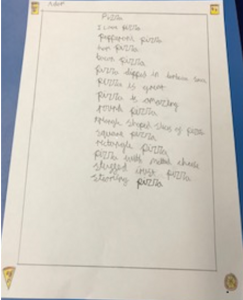 Pizza
I love pizza
pepperoni pizza
hot pizza
pizza dipped in
pizza is great
pizza is amazing
round pizza
triangle shaped slices of pizza
square pizza
rectangle pizza
pizza with melted cheese
stuffed crust pizza
steaming pizza